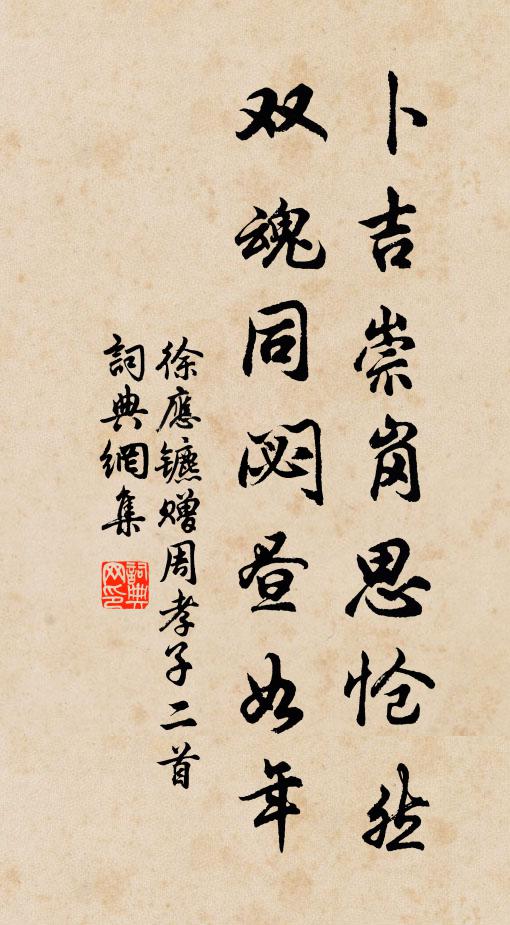 卜吉崇岗思怆然
双魂同閟昼如年
徐應镳赠周孝子二首
詞典網集
詞典网印